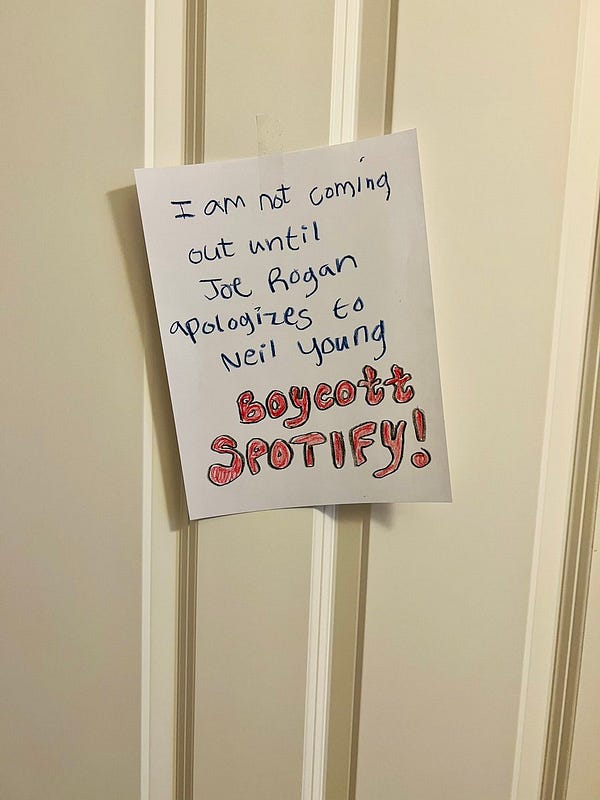 I am not coming
out until
Joe Rogan
apologizes to
Neil Young
Boycott
SPOTIFY!